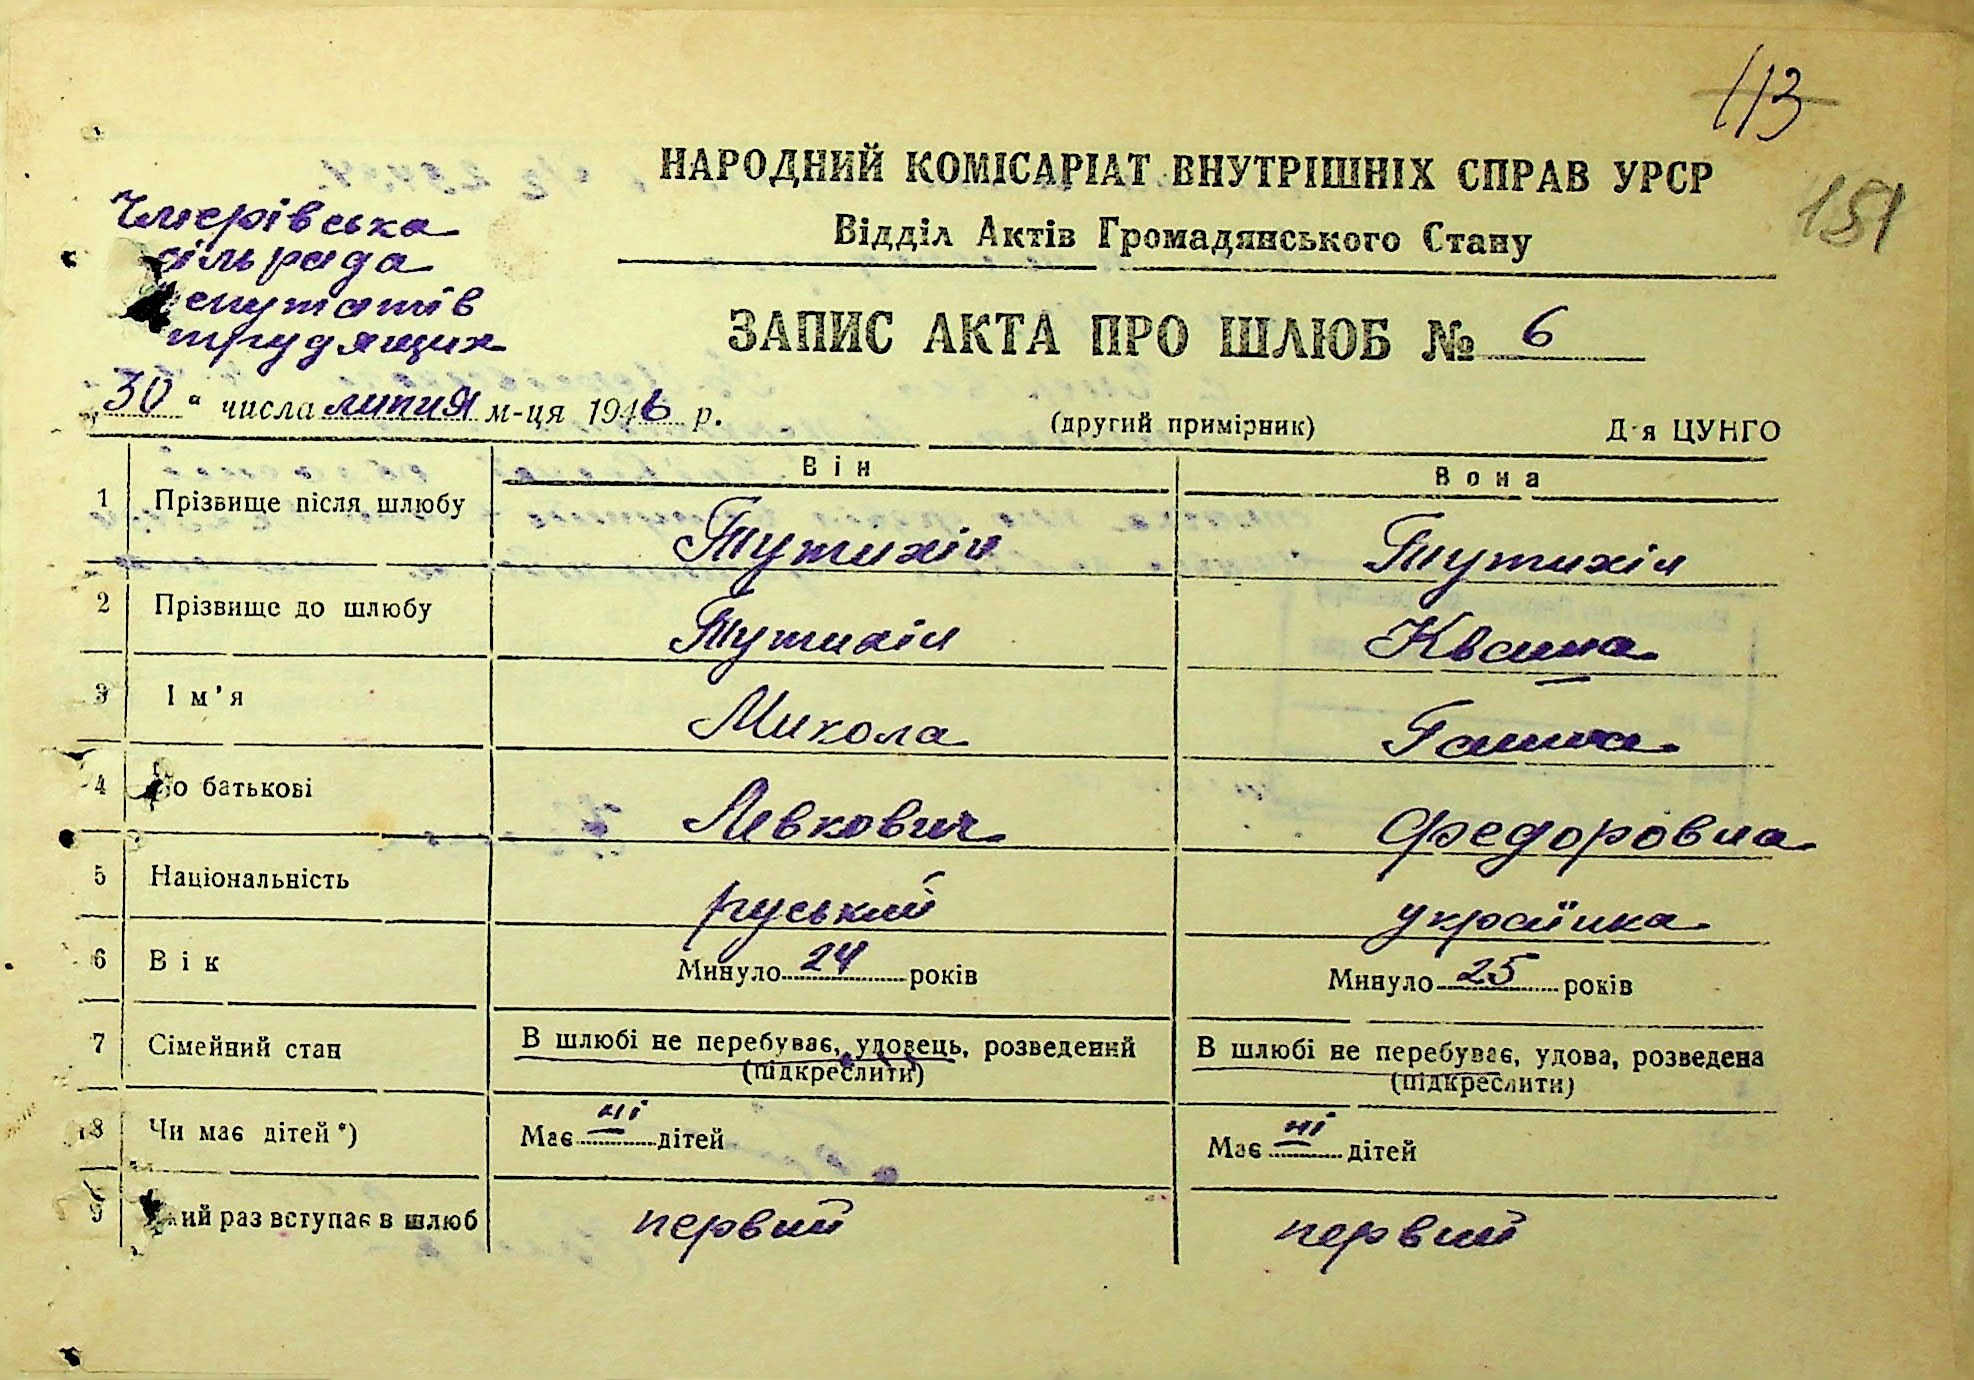 113
НАРОДНИЙ КОМІСАРІАТ ВНУТРІШНІХ СПРАВ УРСР
151
Відділ Актів Громадянського Стану
Чмерівська
сільрада
депутатів
трудящих
ЗАПИС АКТА ПРО ШЛЮБ № 6
"30" числа липня м-ця 1946 р.
(другий примірник)
Д-я ЦУНГО
Він
Вона
1 Прізвище після шлюбу Тутихін Тутихін
2 Прізвище до шлюбу Тутихін Кваша
3 Ім'я Микола Ганна
4 По батькові Левкович Федоровна
5 Національність руський українка
6 Вік Минуло 24 років Минуло 25 років
7 Сімейний стан В шлюбі не перебуває, удовець, розведений В шлюбі не перебуває, удова, розведена
(підкреслити) (підкреслити)
8 Чи має дітей*) Має ні дітей Має ні дітей
9 Який раз вступає в шлюб первий первий